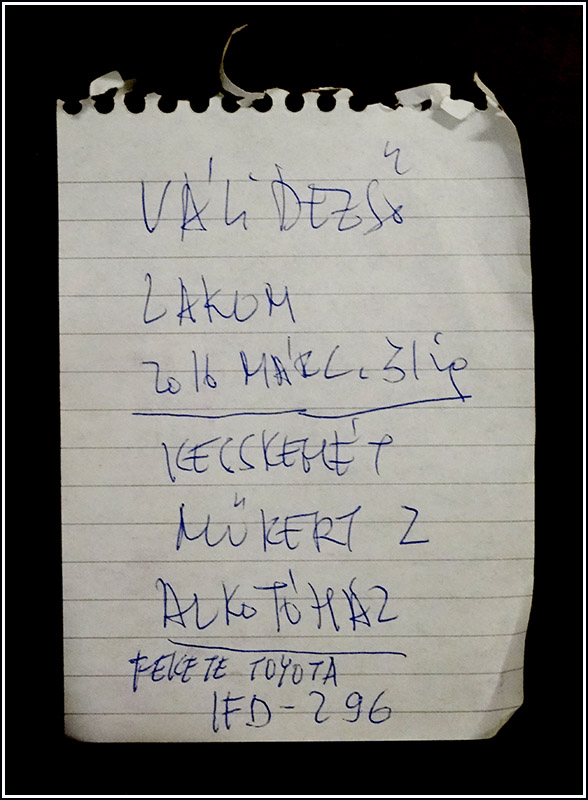 VÁLI DEZSŐ
LAKOM
2016 MÁRC. 31 ig
KECSKEMÉT
MŰKERT 2
ALKOTÓHÁZ
FEKETE TOYOTA
IFD-296